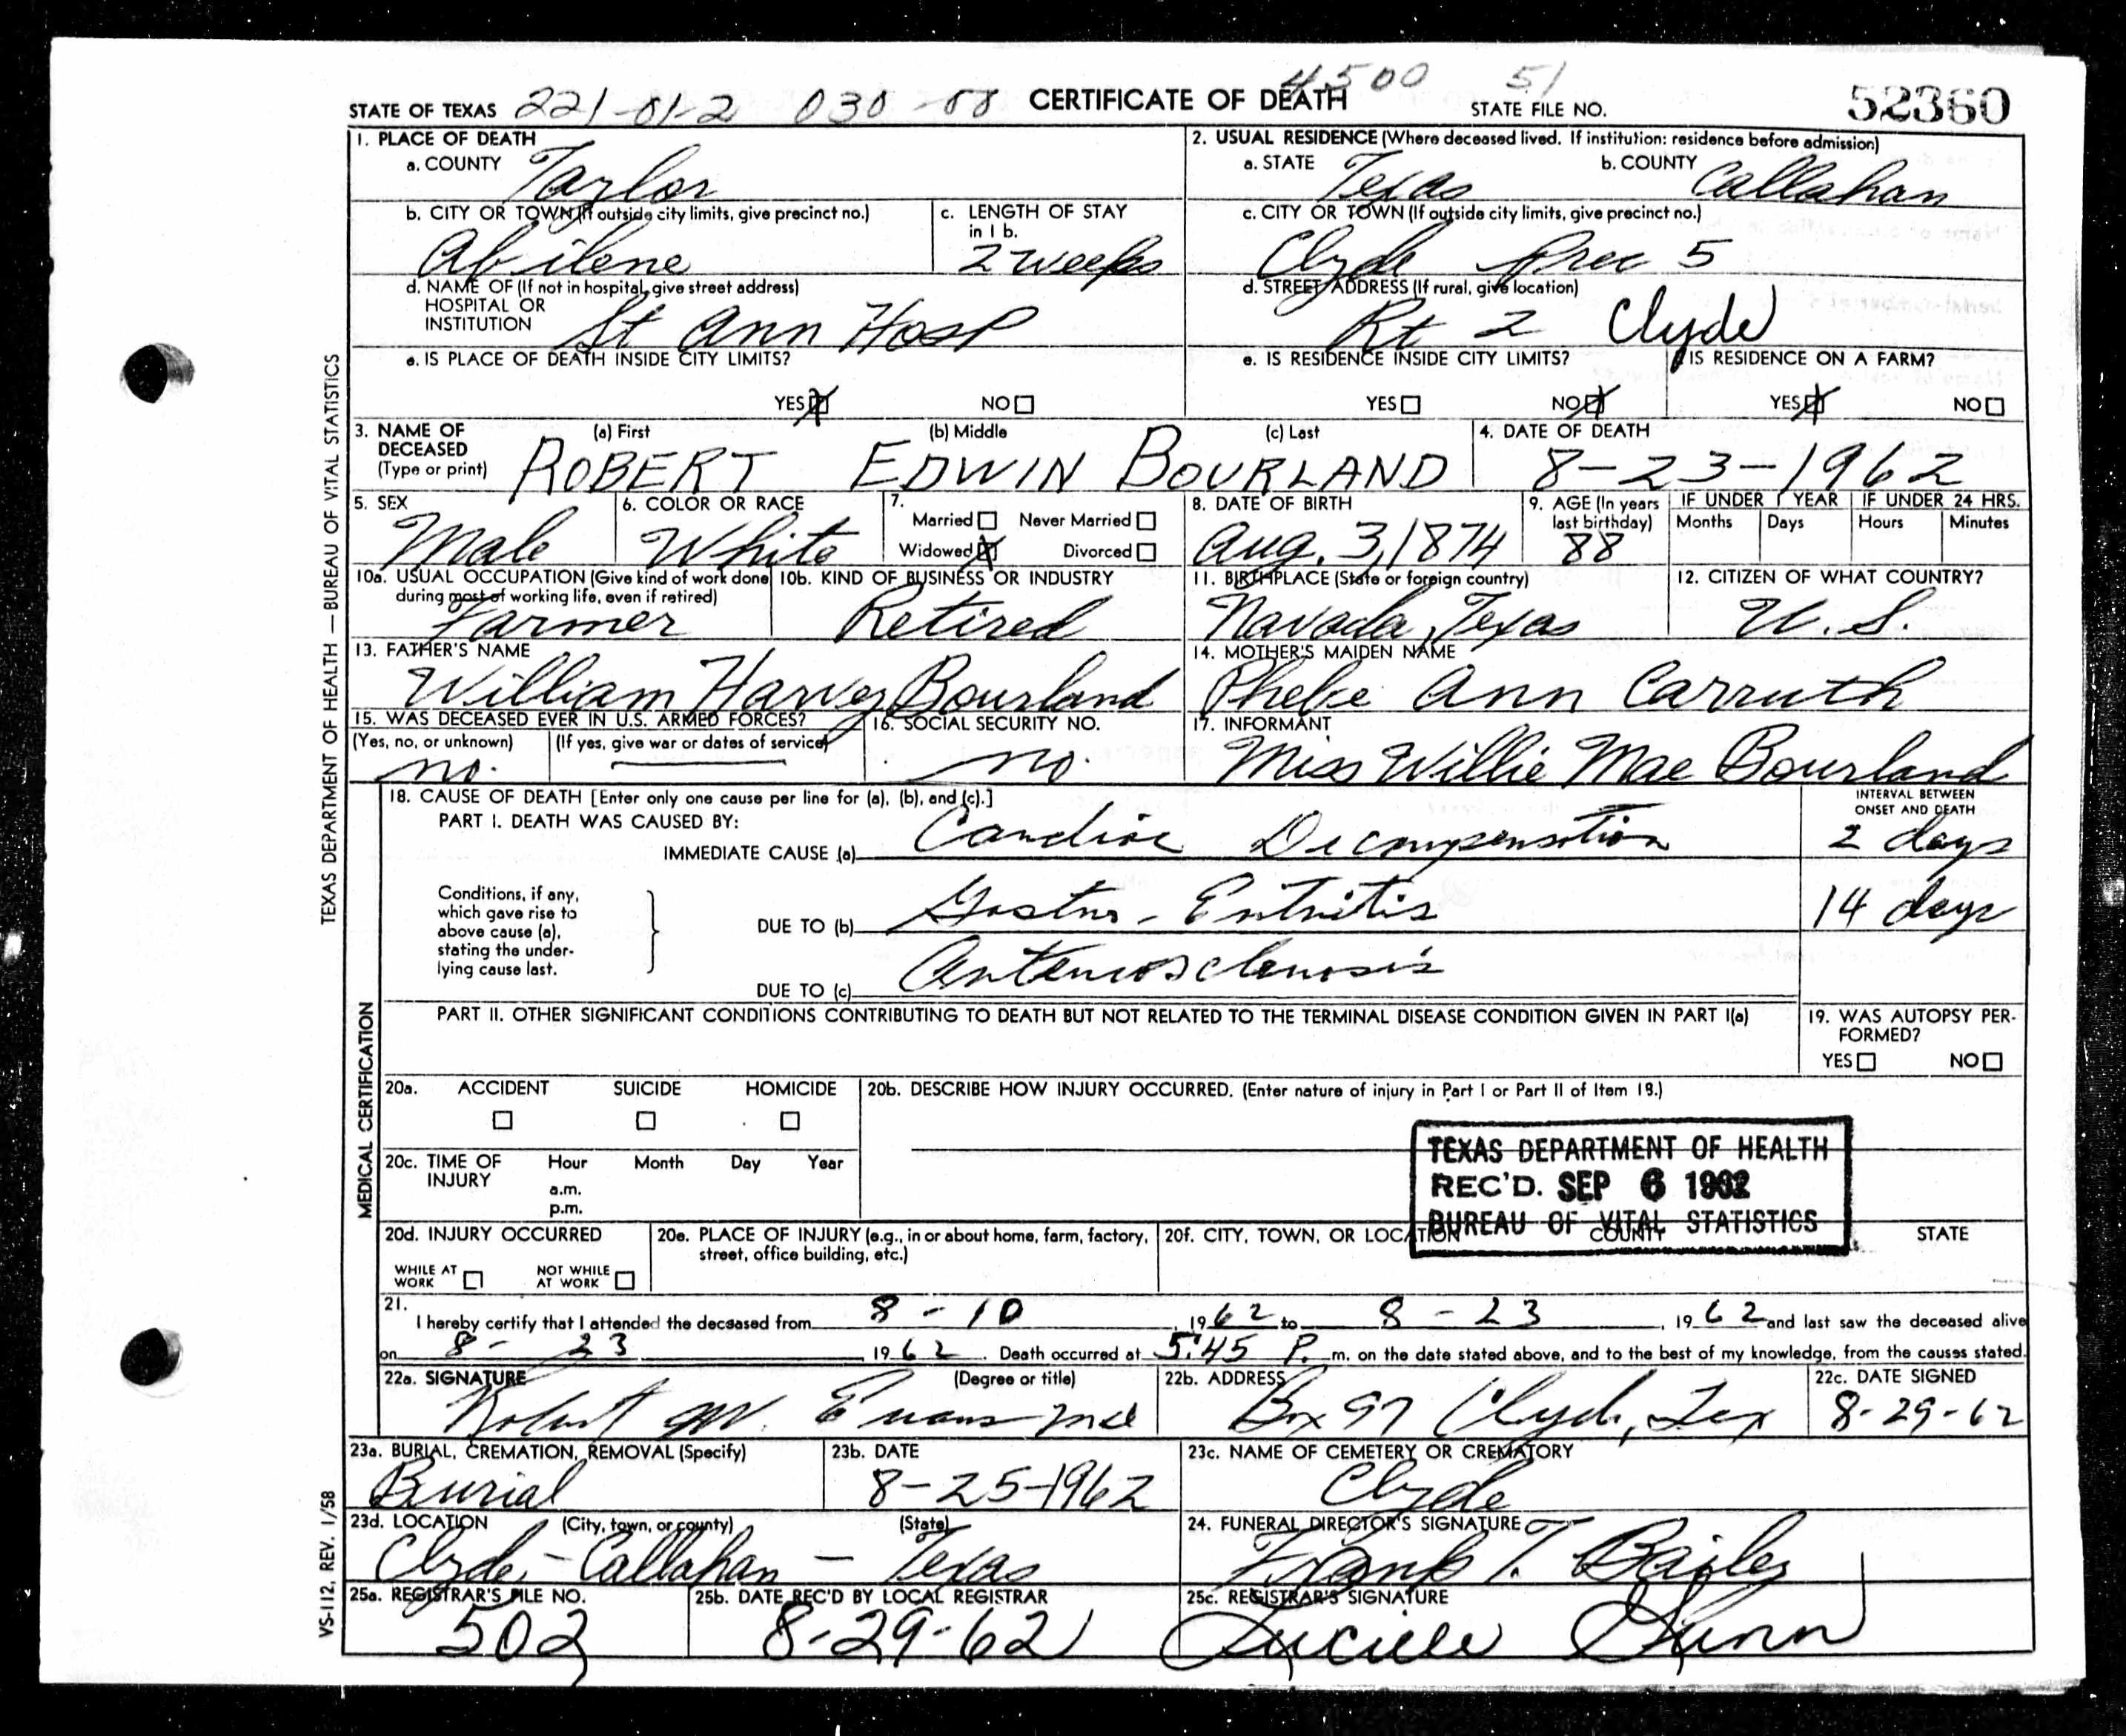 4500 51
STATE OF TEXAS 221-01-2 030 CERTIFICATE OF DEATH STATE FILE NO. 52360
1. PLACE OF DEATH
a. COUNTY Taylor
b. CITY OR TOWN (If outside city limits, give precinct no.)
Abilene
c. LENGTH OF STAY in 1 b.
2 weeks
d. NAME OF (If not in hospital, give street address)
HOSPITAL OR
INSTITUTION St Ann Hosp
e. IS PLACE OF DEATH INSIDE CITY LIMITS?
YES X NO
2. USUAL RESIDENCE (Where deceased lived. If institution: residence before admission)
a. STATE Texas b. COUNTY Callahan
c. CITY OR TOWN (If outside city limits, give precinct no.)
Clyde Prec 5
d. STREET ADDRESS (If rural, give location)
Rt 2 Clyde
e. IS RESIDENCE INSIDE CITY LIMITS?
YES NO X
IS RESIDENCE ON A FARM?
YES X NO
3. NAME OF DECEASED (Type or print)
(a) First (b) Middle (c) Last
ROBERT EDWIN BOURLAND
4. DATE OF DEATH
8-23-1962
5. SEX
Male
6. COLOR OR RACE
White
7.
Married Never Married
Widowed X Divorced
8. DATE OF BIRTH
Aug. 3, 1874
9. AGE (In years last birthday)
88
IF UNDER 1 YEAR
Months Days
IF UNDER 24 HRS.
Hours Minutes
10a. USUAL OCCUPATION (Give kind of work done
during most of working life, even if retired)
Farmer
10b. KIND OF BUSINESS OR INDUSTRY
Retired
11. BIRTHPLACE (State or foreign country)
Navada, Texas
12. CITIZEN OF WHAT COUNTRY?
U.S.
13. FATHER'S NAME
William Harvey Bourland
14. MOTHER'S MAIDEN NAME
Phebe Ann Carruth
15. WAS DECEASED EVER IN U.S. ARMED FORCES?
(Yes, no, or unknown) (If yes, give war or dates of service)
no.
16. SOCIAL SECURITY NO.
no.
17. INFORMANT
Miss Willie Mae Bourland
MEDICAL CERTIFICATION
18. CAUSE OF DEATH [Enter only one cause per line for (a), (b), and (c).]
PART I. DEATH WAS CAUSED BY:
INTERVAL BETWEEN
ONSET AND DEATH
IMMEDIATE CAUSE (a) Cardiac Decompensation 2 days
Conditions, if any,
which gave rise to
above cause (a),
stating the under-
lying cause last.
DUE TO (b) Gastro-Entritis 14 days
DUE TO (c) Arteriosclerosis
PART II. OTHER SIGNIFICANT CONDITIONS CONTRIBUTING TO DEATH BUT NOT RELATED TO THE TERMINAL DISEASE CONDITION GIVEN IN PART I(a)
19. WAS AUTOPSY PER-
FORMED?
YES NO
20a. ACCIDENT SUICIDE HOMICIDE
20b. DESCRIBE HOW INJURY OCCURRED. (Enter nature of injury in Part I or Part II of Item 18.)
20c. TIME OF INJURY Hour Month Day Year
a.m.
p.m.
TEXAS DEPARTMENT OF HEALTH
REC'D. SEP 6 1962
BUREAU OF VITAL STATISTICS
20d. INJURY OCCURRED
WHILE AT WORK NOT WHILE AT WORK
20e. PLACE OF INJURY (e.g., in or about home, farm, factory,
street, office building, etc.)
20f. CITY, TOWN, OR LOCATION COUNTY STATE
21.
I hereby certify that I attended the deceased from 8-10, 1962 to 8-23, 1962 and last saw the deceased alive
on 8-23, 1962. Death occurred at 5:45 P. m. on the date stated above, and to the best of my knowledge, from the causes stated.
22a. SIGNATURE (Degree or title)
Robert M. Evans Md
22b. ADDRESS
Box 97 Clyde, Tex
22c. DATE SIGNED
8-29-62
23a. BURIAL, CREMATION, REMOVAL (Specify)
Burial
23b. DATE
8-25-1962
23c. NAME OF CEMETERY OR CREMATORY
Clyde
23d. LOCATION (City, town, or county) (State)
Clyde - Callahan - Texas
24. FUNERAL DIRECTOR'S SIGNATURE
Frank T. Bailey
25a. REGISTRAR'S FILE NO.
502
25b. DATE REC'D BY LOCAL REGISTRAR
8-29-62
25c. REGISTRAR'S SIGNATURE
Lucille
TEXAS DEPARTMENT OF HEALTH — BUREAU OF VITAL STATISTICS
VS-112, REV. 1/58